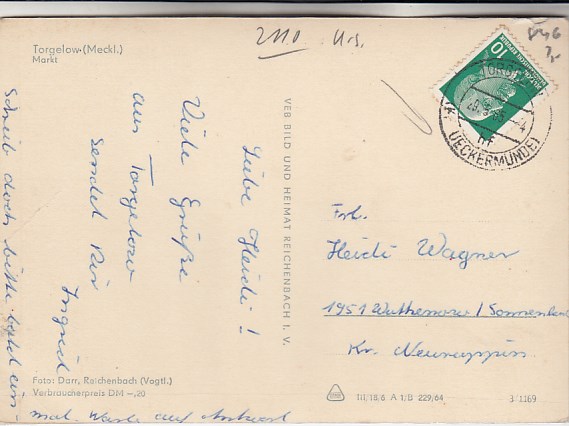 Torgelow (Meckl.)
Markt
2110
Urs.
Liebe Heidi!
Viele Grüße
aus Torgelow
sendet Dir
Ingrid
Schreib doch bitte bald ein-
mal. Warte auf Antwort
VEB BILD UND HEIMAT REICHENBACH I. V.
10
(UECKERMÜNDE)
Frl.
Heidi Wagner
1951 Wuthenow/Sonnenland
Kr. Neuruppin
Foto: Darr, Reichenbach (Vogtl.)
Verbraucherpreis DM -,20
III/18/6 A 1/B 229/64
3 1169